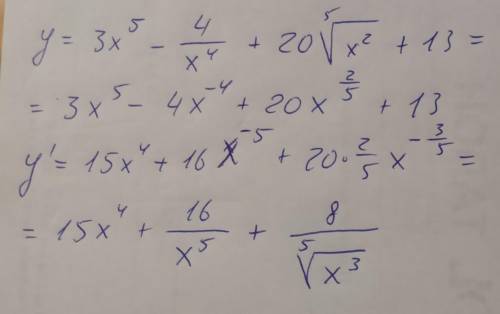 y = 3x⁵ - 4/x⁴ + 20 ⁵√(x²) + 13 =
= 3x⁵ - 4x⁻⁴ + 20x^(2/5) + 13
y' = 15x⁴ + 16x⁻⁵ + 20·2/5 x^(-3/5) =
= 15x⁴ + 16/x⁵ + 8/⁵√(x³)